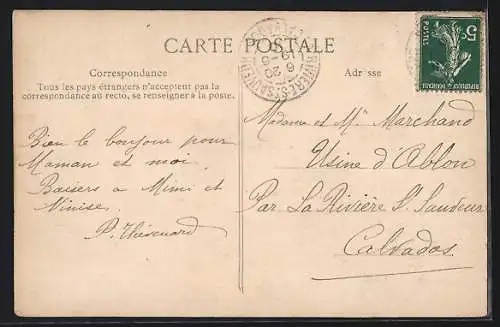 CARTE POSTALE
Correspondance
Tous les pays étrangers n'acceptent pas la
correspondance au recto, se renseigner à la poste.
Adr sse
5c
POSTES
Bien le bonjour pour
Maman et moi.
Baisers a Mimi et
Ninise.
P. Thévenard
Madame et Mr Marchand
Usine d'Ablon
Par La Rivière St Sauveur
Calvados